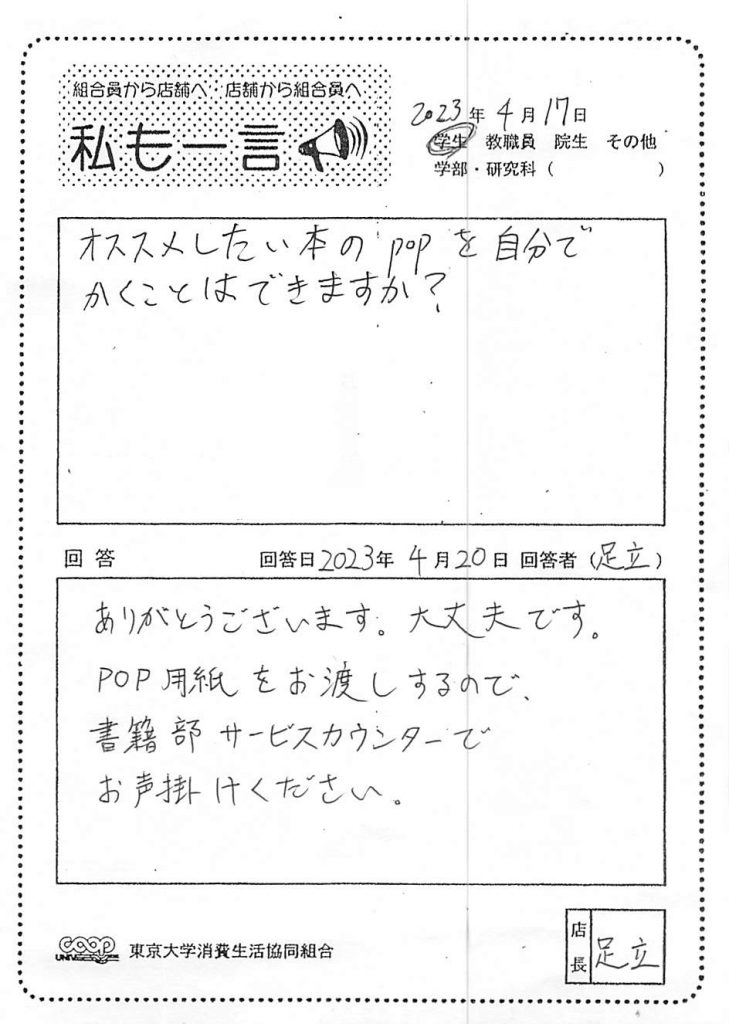 組合員から店舗へ 店舗から組合員へ
私も一言
2023年4月17日
学生 教職員 院生 その他
学部・研究科( )
オススメしたい本の pop を自分で
かくことはできますか?
回答 回答日2023年 4月20日 回答者(足立)
ありがとうございます。大丈夫です。
POP用紙をお渡しするので、
書籍部サービスカウンターで
お声掛けください。
coop
UNIV
東京大学消費生活協同組合
店長 足立